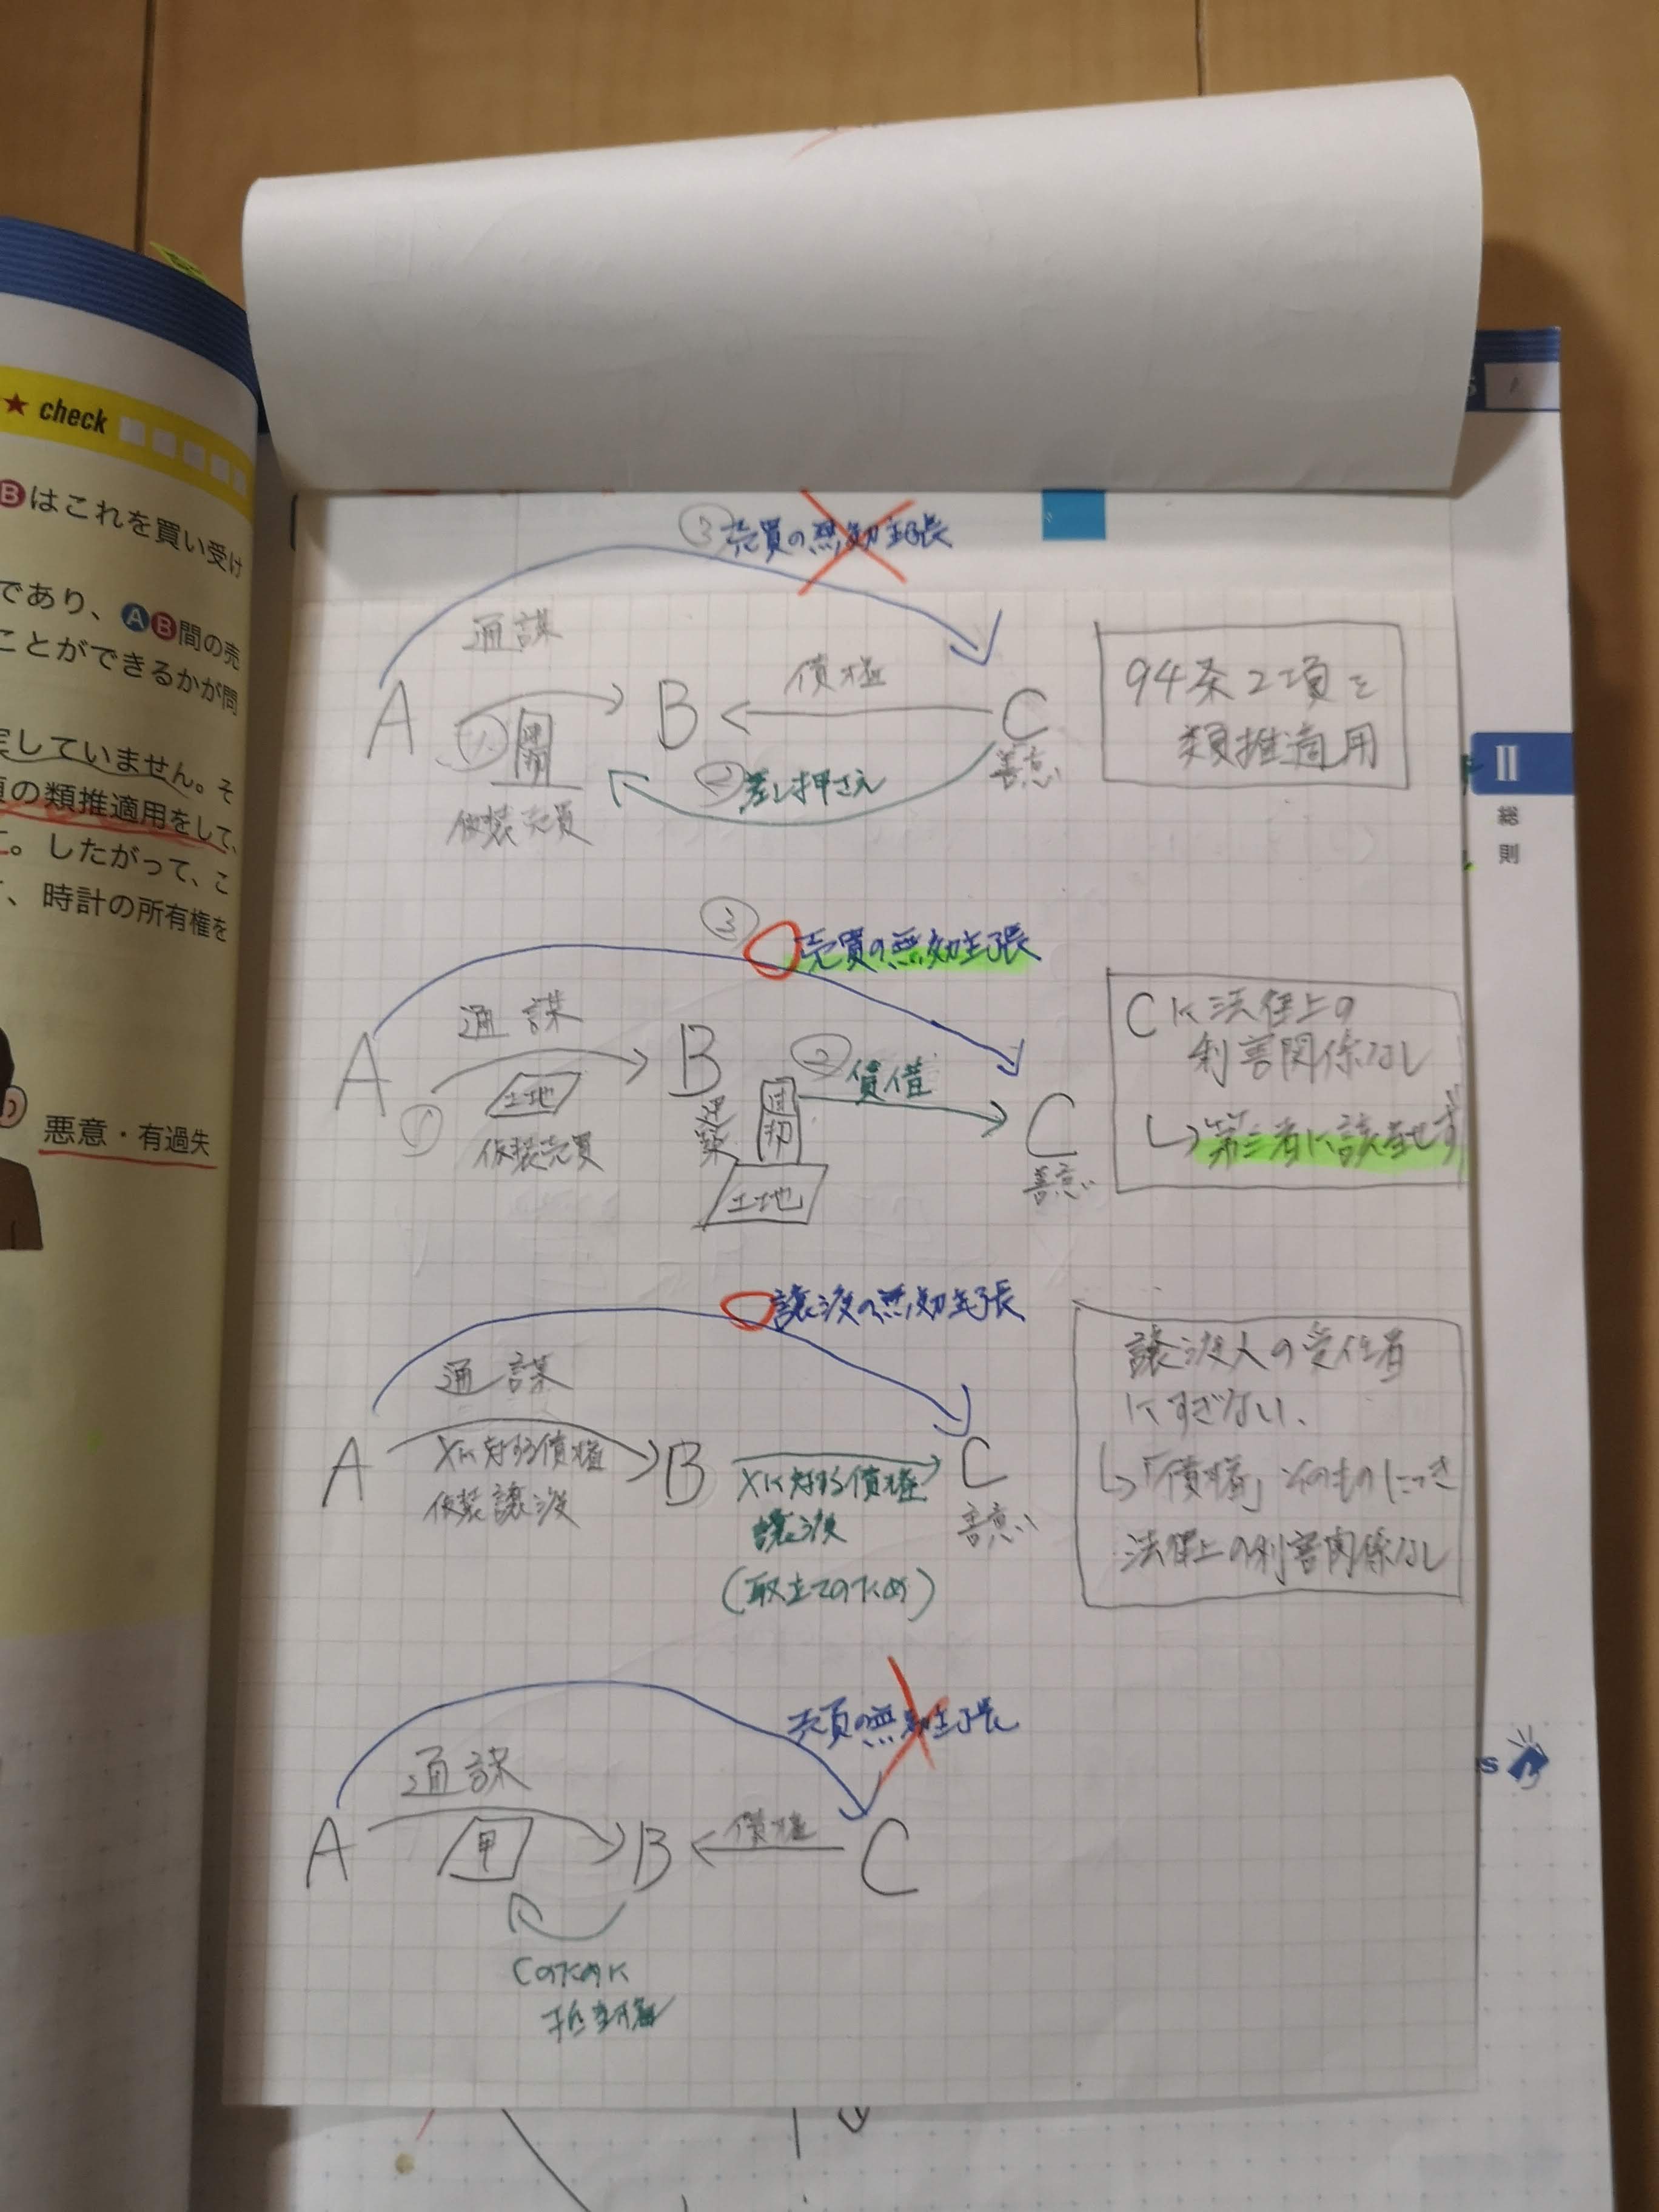 ★ check
Bはこれを買い受け
であり、AB間の売
ことができるかが問
実していません。そ
項の類推適用をして、
た。したがって、こ
、時計の所有権を
悪意・有過失
③売買の無効主張
通謀
債権
A
B
C
善意
①
仮装売買
②差し押さえ
94条2項を
類推適用
II
総則
③売買の無効主張
通謀
A
B
②賃借
①
土地
仮装売買
建築
建物
土地
C
善意
Cに法律上の
利害関係なし
↳第三者に該当せず
譲渡の無効主張
通謀
A
Xに対する債権
仮装譲渡
B
Xに対する債権
譲渡
(取立てのため)
C
善意
譲渡人の受任者
にすぎない、
↳「債権」そのものにつき
法律上の利害関係なし
売買の無効主張
通謀
A
甲
B
債権
C
Cのために
抵当権
S